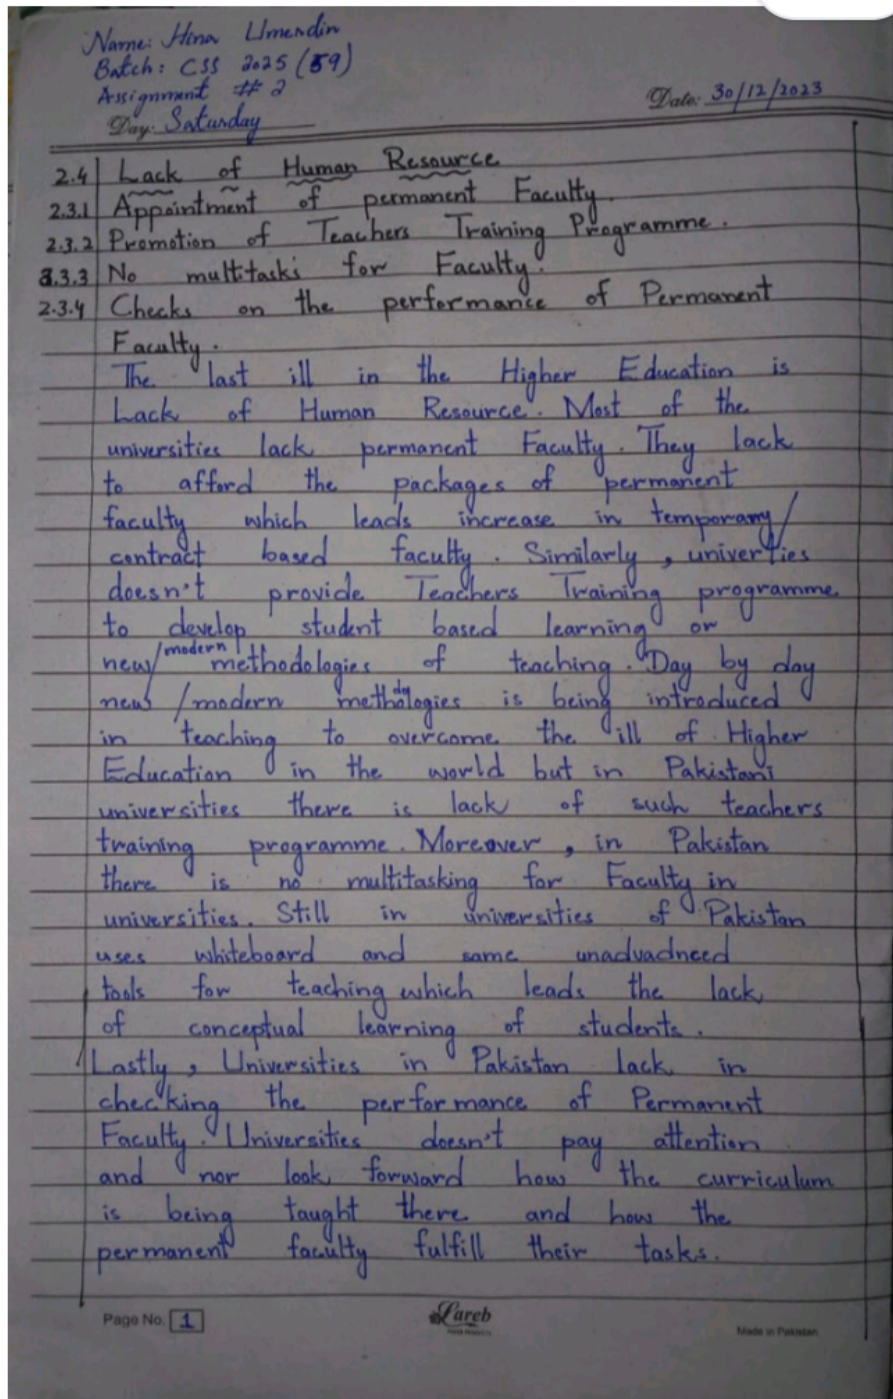 Name: Hina Umerdin
Batch: CSS 2025 (59)
Assignment # 2
Day: Saturday
Date: 30/12/2023
2.4 Lack of Human Resource
2.3.1 Appointment of permanent Faculty.
2.3.2 Promotion of Teachers Training Programme.
2.3.3 No multitasks for Faculty.
2.3.4 Checks on the performance of Permanent
Faculty.
The last ill in the Higher Education is
Lack of Human Resource. Most of the
universities lack permanent Faculty. They lack
to afford the packages of permanent
faculty which leads increase in temporary/
contract based faculty. Similarly, univerties
doesn't provide Teachers Training programme
to develop student based learning or
new/modern methodologies of teaching. Day by day
new /modern methodologies is being introduced
in teaching to overcome the ill of Higher
Education in the world but in Pakistani
universities there is lack of such teachers
training programme. Moreover, in Pakistan
there is no multitasking for Faculty in
universities. Still in universities of Pakistan
uses whiteboard and same unadvadnced
tools for teaching which leads the lack
of conceptual learning of students.
Lastly, Universities in Pakistan lack in
checking the performance of Permanent
Faculty. Universities doesn't pay attention
and nor look forward how the curriculum
is being taught there and how the
permanent faculty fulfill their tasks.
Page No. 1
Lareb
Made in Pakistan